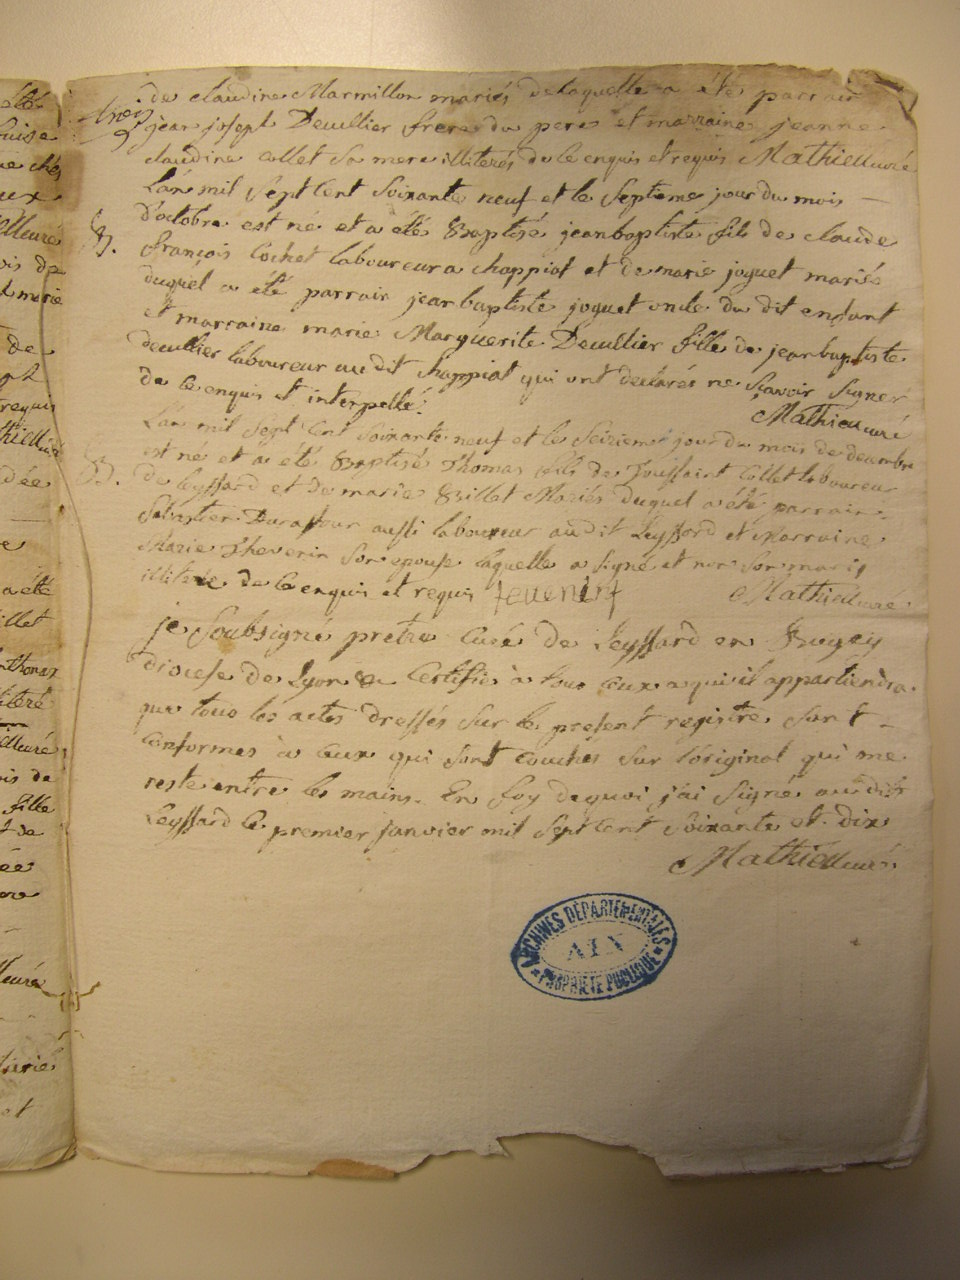 de claudine Marmillon mariés de laquelle a été parrain
jean josept Decullier frere du pere et marraine jeanne
claudine Collet sa mere illiterés de ce enquis et requis Mathieu curé
L'an mil sept cent soixante neuf et le septieme jour du mois
d'octobre est né et a été Baptisé jean baptiste fils de claude
B.
françois Cochet laboureur a chappiat et de marie joguet mariés
duquel a été parrain jean baptiste joguet oncle du dit enfant
et marraine marie Marguerite Decullier fille de jean baptiste
decullier laboureur au dit chappiat qui ont declarés ne sçavoir signer
de ce enquis et interpellé
Mathieu curé
L'an mil sept cent soixante neuf et le seizieme jour du mois de decembre
est né et a été Baptisé Thomas fils de Toussaint Collet laboureur
B.
de leyssard et de marie Brillet Mariés duquel a été parrain
Sebastien Durafour aussi laboureur au dit Leyssard et Marraine
Marie Thevenin son epouse laquelle a signé et non son mary
illiteré de ce enquis et requis tevenint Mathieu curé
je soubsigné pretre curé de Leyssard en Bugey
diocese de Lyon certifie à tous ceux a qui il appartiendra
que tous les actes dressés sur le present registre sont
conformes à ceux qui sont couchés sur l'original qui me
reste entre les mains. En foy dequoi j'ai signé au dit
Leyssard le premier janvier mil sept cent soixante et dix
Mathieu curé
ARCHIVES DÉPARTEMENTALES
AIN
PROPRIÉTÉ PUBLIQUE